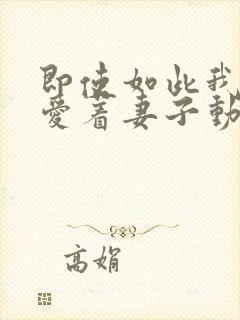 即使如此我
爱着妻子動
高娟